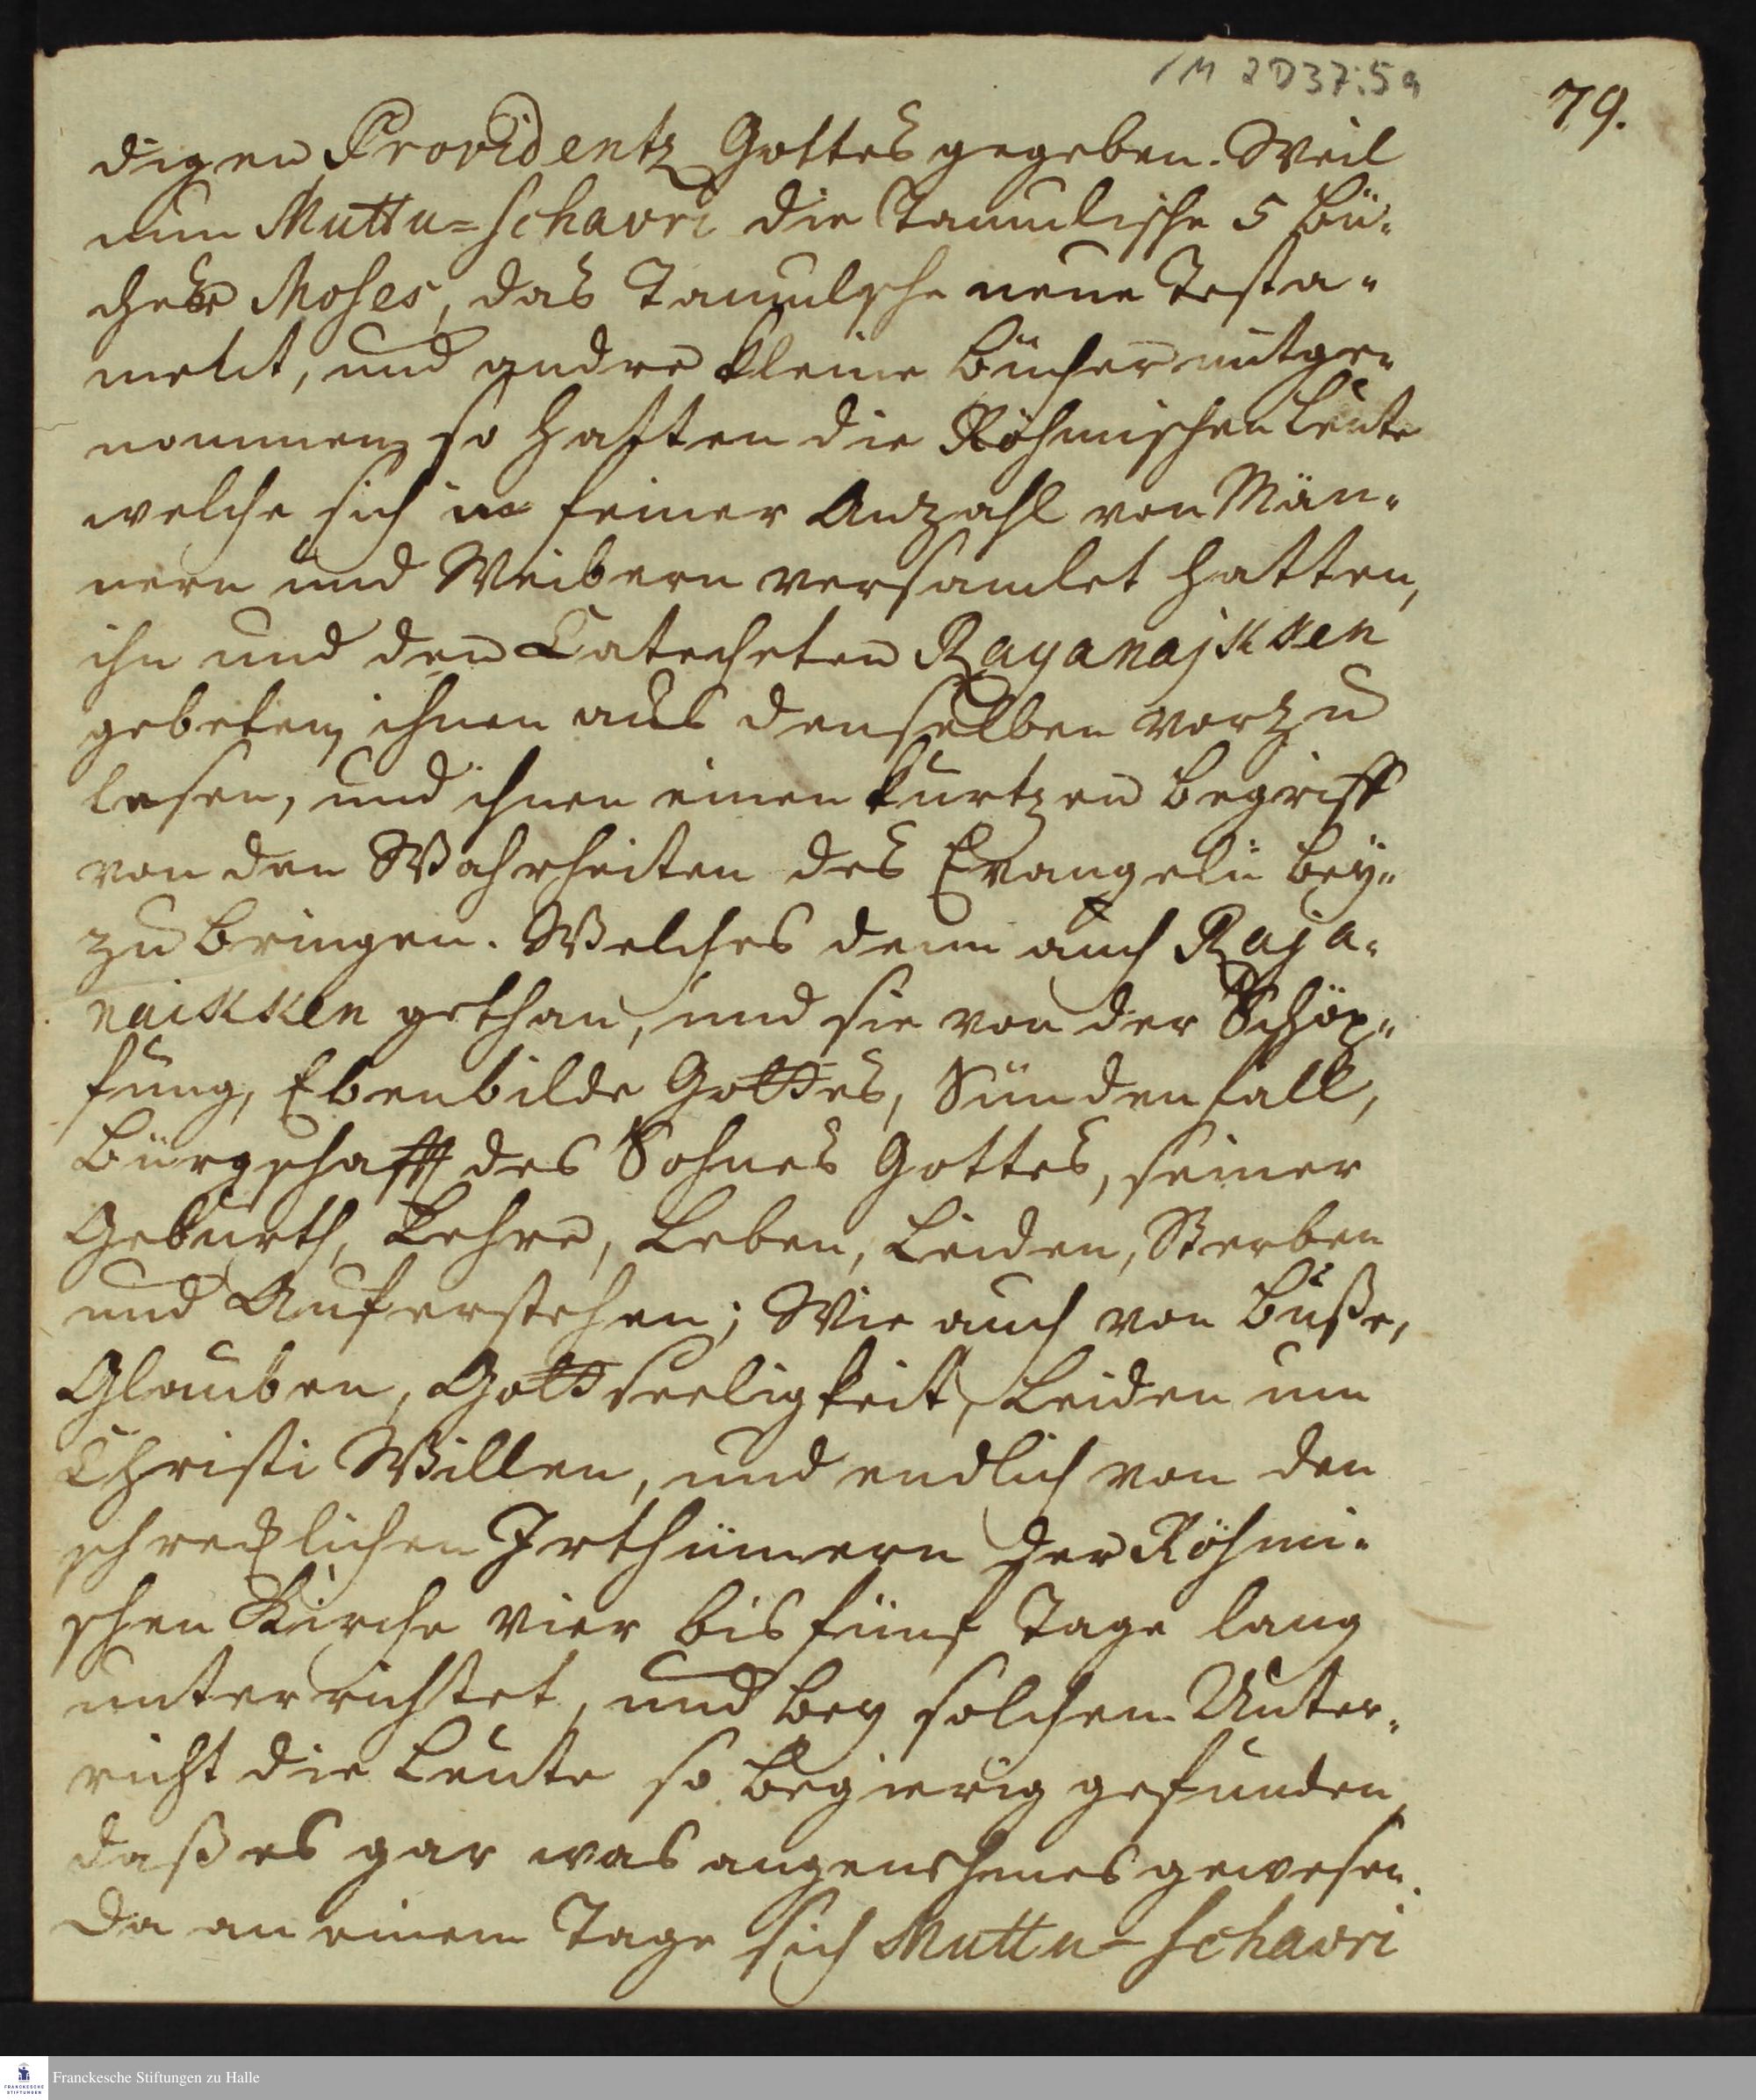 /M 2D37:5a
79.
digen Providentz Gottes gegeben. Weil
nun Muttu=Schavri die Tamulische 5 Bü-
cher Moses, das Tamulsche neue Testa-
ment, und andre kleine Bücher mitge-
nommen, so hatten die Röhmischen Leute
welche sich in feiner Anzahl von Män-
nern und Weibern versamlet hatten,
ihn und den Catecheten Rayanajkken
gebeten, ihnen aus denselben vorzu
lesen, und ihnen einen kurtzen Begriff
von den Wahrheiten des Evangelii bey-
zu bringen. Welches denn auch Raja-
naickken gethan, und sie von der Schöp-
fung, Ebenbilde Gottes, Sündenfall,
Bürgschafft des Sohnes Gottes, seiner
Geburth, Lehre, Leben, Leiden, Sterben
und Auferstehen; Wie auch von Buße,
Glauben, Gottseeligkeit, Leiden um
Christi Willen, und endlich von den
schrecklichen Irthümern der Röhmi-
schen Kirche vier bis fünf Tage lang
unterrichtet, und bey solchem Unter-
richt die Leute so begierig gefunden,
daß es gar was angenehmes gewesen.
Da an einem Tage sich Muttu=Schavri
Franckesche Stiftungen zu Halle